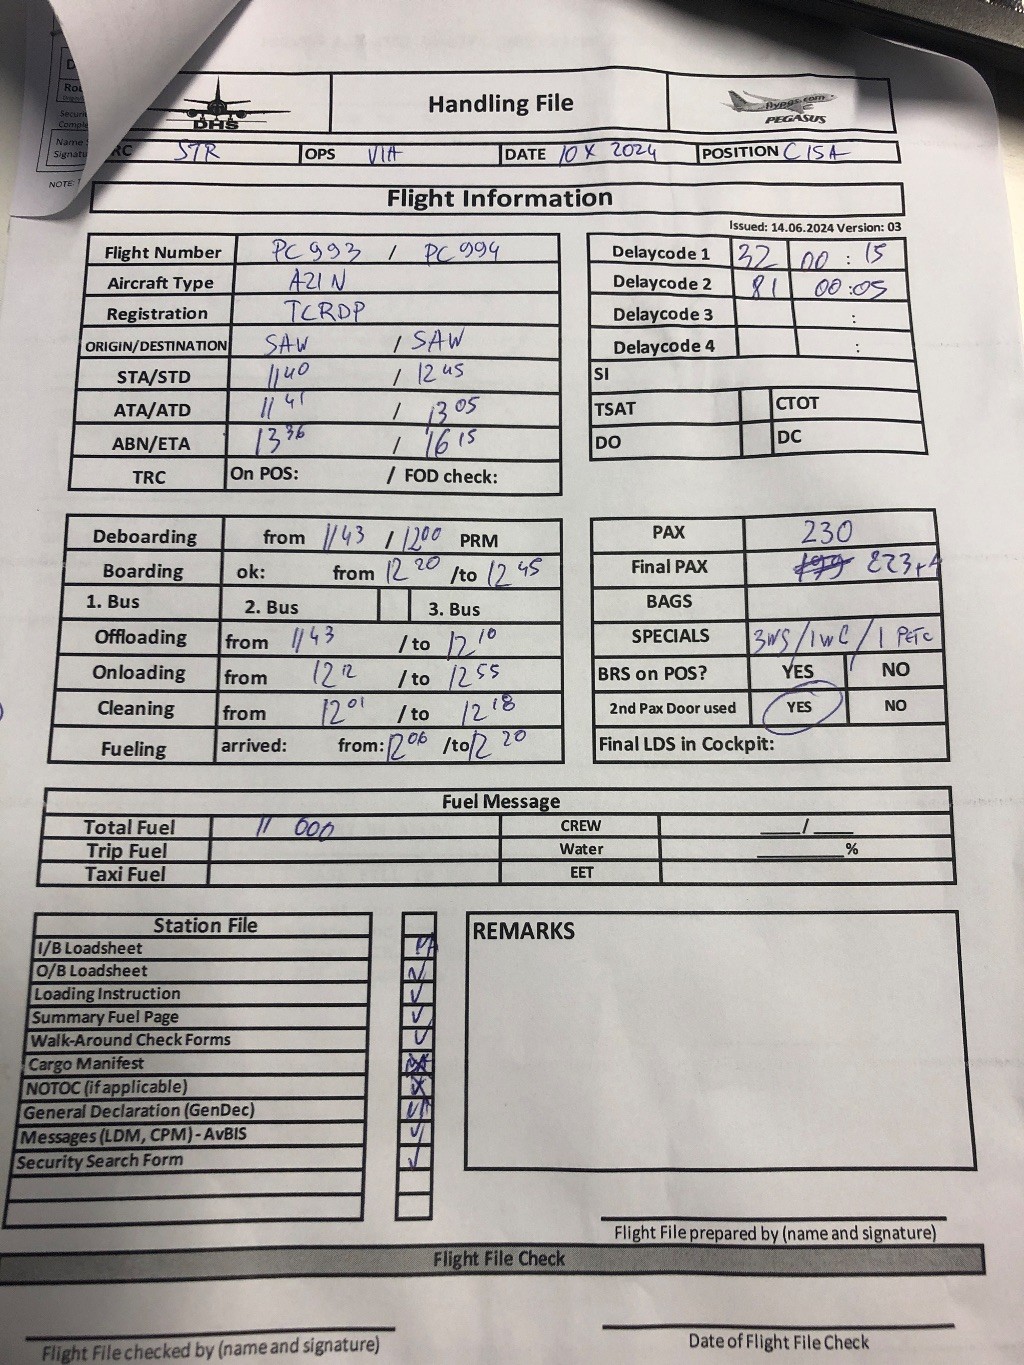 DHS
Handling File
flypgs.com
PEGASUS
RC STR OPS VIA DATE 10 X 2024 POSITION C15A
NOTE:
Flight Information
Issued: 14.06.2024 Version: 03
Flight Number PC 993 / PC 994
Aircraft Type A21N
Registration TCRDP
ORIGIN/DESTINATION SAW / SAW
STA/STD 1140 / 1245
ATA/ATD 1141 / 1305
ABN/ETA 1336 / 1615
TRC On POS: / FOD check:
Delaycode 1 32 00 : 15
Delaycode 2 81 00:05
Delaycode 3 :
Delaycode 4 :
SI
TSAT CTOT
DO DC
Deboarding from 1143 / 1200 PRM
Boarding ok: from 1220 /to 1245
1. Bus 2. Bus 3. Bus
Offloading from 1143 / to 1210
Onloading from 1212 / to 1255
Cleaning from 1201 / to 1218
Fueling arrived: from: 1206 /to 1220
PAX 230
Final PAX 199 223+A
BAGS
SPECIALS 3WS/1WC/1 PETC
BRS on POS? YES NO
2nd Pax Door used YES NO
Final LDS in Cockpit:
Fuel Message
Total Fuel 11 000 CREW ___/___
Trip Fuel Water ______%
Taxi Fuel EET
Station File
I/B Loadsheet
O/B Loadsheet
Loading Instruction
Summary Fuel Page
Walk-Around Check Forms
Cargo Manifest
NOTOC (if applicable)
General Declaration (GenDec)
Messages (LDM, CPM) - AvBIS
Security Search Form
REMARKS
Flight File prepared by (name and signature)
Flight File Check
Flight File checked by (name and signature)
Date of Flight File Check